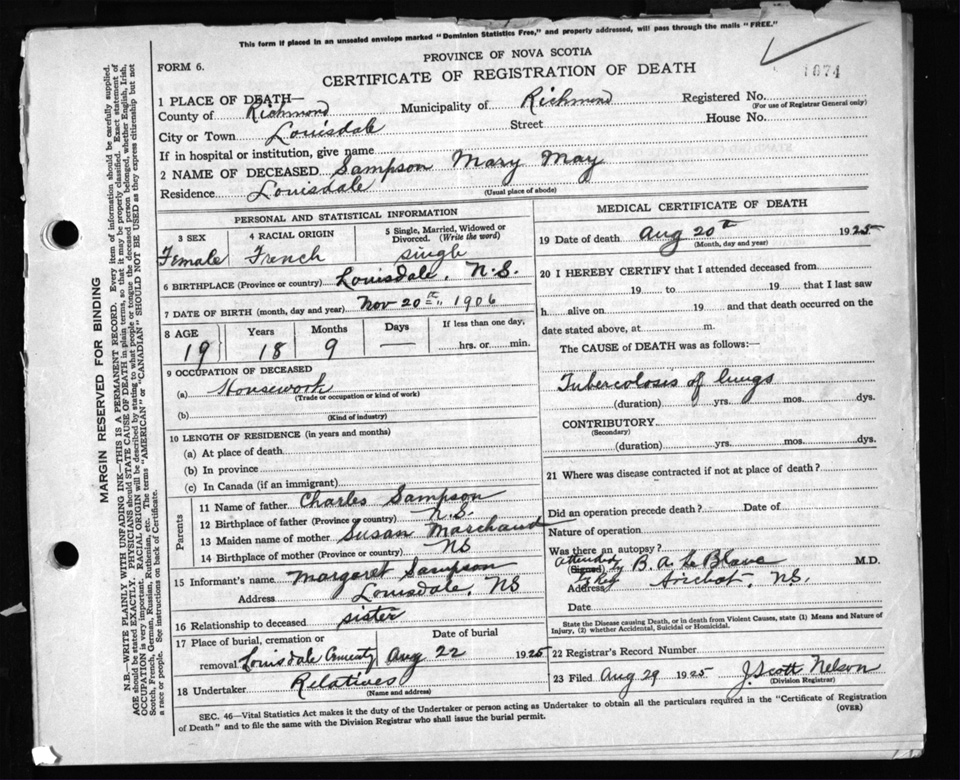 This form if placed in an unsealed envelope marked "Dominion Statistics Free," and property addressed, will pass through the mails "FREE."
PROVINCE OF NOVA SCOTIA
FORM 6.
CERTIFICATE OF REGISTRATION OF DEATH
1674
1 PLACE OF DEATH—
County of Richmond Municipality of Richmond Registered No.
(For use of Registrar General only)
City or Town Louisdale Street House No.
If in hospital or institution, give name
2 NAME OF DECEASED Sampson Mary May
Residence Louisdale (Usual place of abode)
PERSONAL AND STATISTICAL INFORMATION
3 SEX 4 RACIAL ORIGIN 5 Single, Married, Widowed or Divorced. (Write the word)
Female French single
6 BIRTHPLACE (Province or country) Louisdale, N.S.
7 DATE OF BIRTH (month, day and year) Nov 20th, 1906
8 AGE Years Months Days If less than one day,
19 18 9 — hrs. or min.
9 OCCUPATION OF DECEASED
(a) Housework
(Trade or occupation or kind of work)
(b)
(Kind of industry)
10 LENGTH OF RESIDENCE (in years and months)
(a) At place of death
(b) In province
(c) In Canada (if an immigrant)
Parents
11 Name of father Charles Sampson
12 Birthplace of father (Province or country) N.S.
13 Maiden name of mother Susan Marchand
14 Birthplace of mother (Province or country) NS
15 Informant's name Margaret Sampson
Address Louisdale, NS
16 Relationship to deceased sister
17 Place of burial, cremation or Date of burial
removal Louisdale Cemetry Aug 22 1925
18 Undertaker Relatives
(Name and address)
MEDICAL CERTIFICATE OF DEATH
19 Date of death Aug 20th 1925
(Month, day and year)
20 I HEREBY CERTIFY that I attended deceased from
19 to 19 that I last saw
h alive on 19 and that death occurred on the
date stated above, at m.
The CAUSE of DEATH was as follows:—
Tubercolosis of lungs
(duration) yrs. mos. dys.
CONTRIBUTORY
(Secondary)
(duration) yrs. mos. dys.
21 Where was disease contracted if not at place of death?
Did an operation precede death? Date of
Nature of operation
Was there an autopsy?
attended by
(Signed) B. A. LeBlanc M.D.
Address Arichat, NS.
Date
State the Disease causing Death, or in death from Violent Causes, state (1) Means and Nature of
Injury, (2) whether Accidental, Suicidal or Homicidal.
22 Registrar's Record Number
23 Filed Aug 29 1925 J. Scott Nelson
(Division Registrar)
SEC. 46—Vital Statistics Act makes it the duty of the Undertaker or person acting as Undertaker to obtain all the particulars required in the "Certificate of Registration
of Death" and to file the same with the Division Registrar who shall issue the burial permit.
(OVER)
MARGIN RESERVED FOR BINDING
N.B.—WRITE PLAINLY WITH UNFADING INK—THIS IS A PERMANENT RECORD. Every item of information should be carefully supplied.
AGE should be stated EXACTLY. PHYSICIANS should STATE CAUSE OF DEATH in plain terms, so that it may be properly classified. Exact statement of
OCCUPATION is very important. RACIAL ORIGIN will be described by stating to what people or tongue the deceased person belonged, whether English, Irish,
Scotch, French, German, Russian, Ruthenian, etc. The terms "AMERICAN" or "CANADIAN" SHOULD NOT BE USED as they express citizenship but not
a race or people. See instructions on back of Certificate.